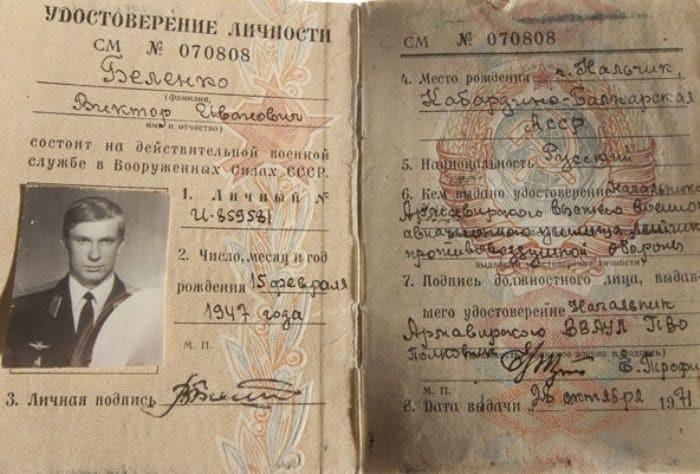 УДОСТОВЕРЕНИЕ ЛИЧНОСТИ
СМ № 070808
Беленко
(фамилия,
Виктор Иванович
имя и отчество)
состоит на действительной военной
службе в Вооруженных Силах СССР.
1. Личный №
И-859581
2. Число, месяц и год
рождения 15 февраля
1947 года
М. П.
3. Личная подпись
СМ № 070808
4. Место рождения г. Нальчик,
Кабардино-Балкарская
АССР
5. Национальность Русский
6. Кем выдано удостоверение Начальник
Армавирского высшего военно
авиационного училища летчик
противовоздушной обороны
7. Подпись должностного лица, выдав
шего удостоверение Начальник
Армавирского ВВАУЛ ПВО
полковник
Е. Трофи
М. П.
8. Дата выдачи „26 октября 1971